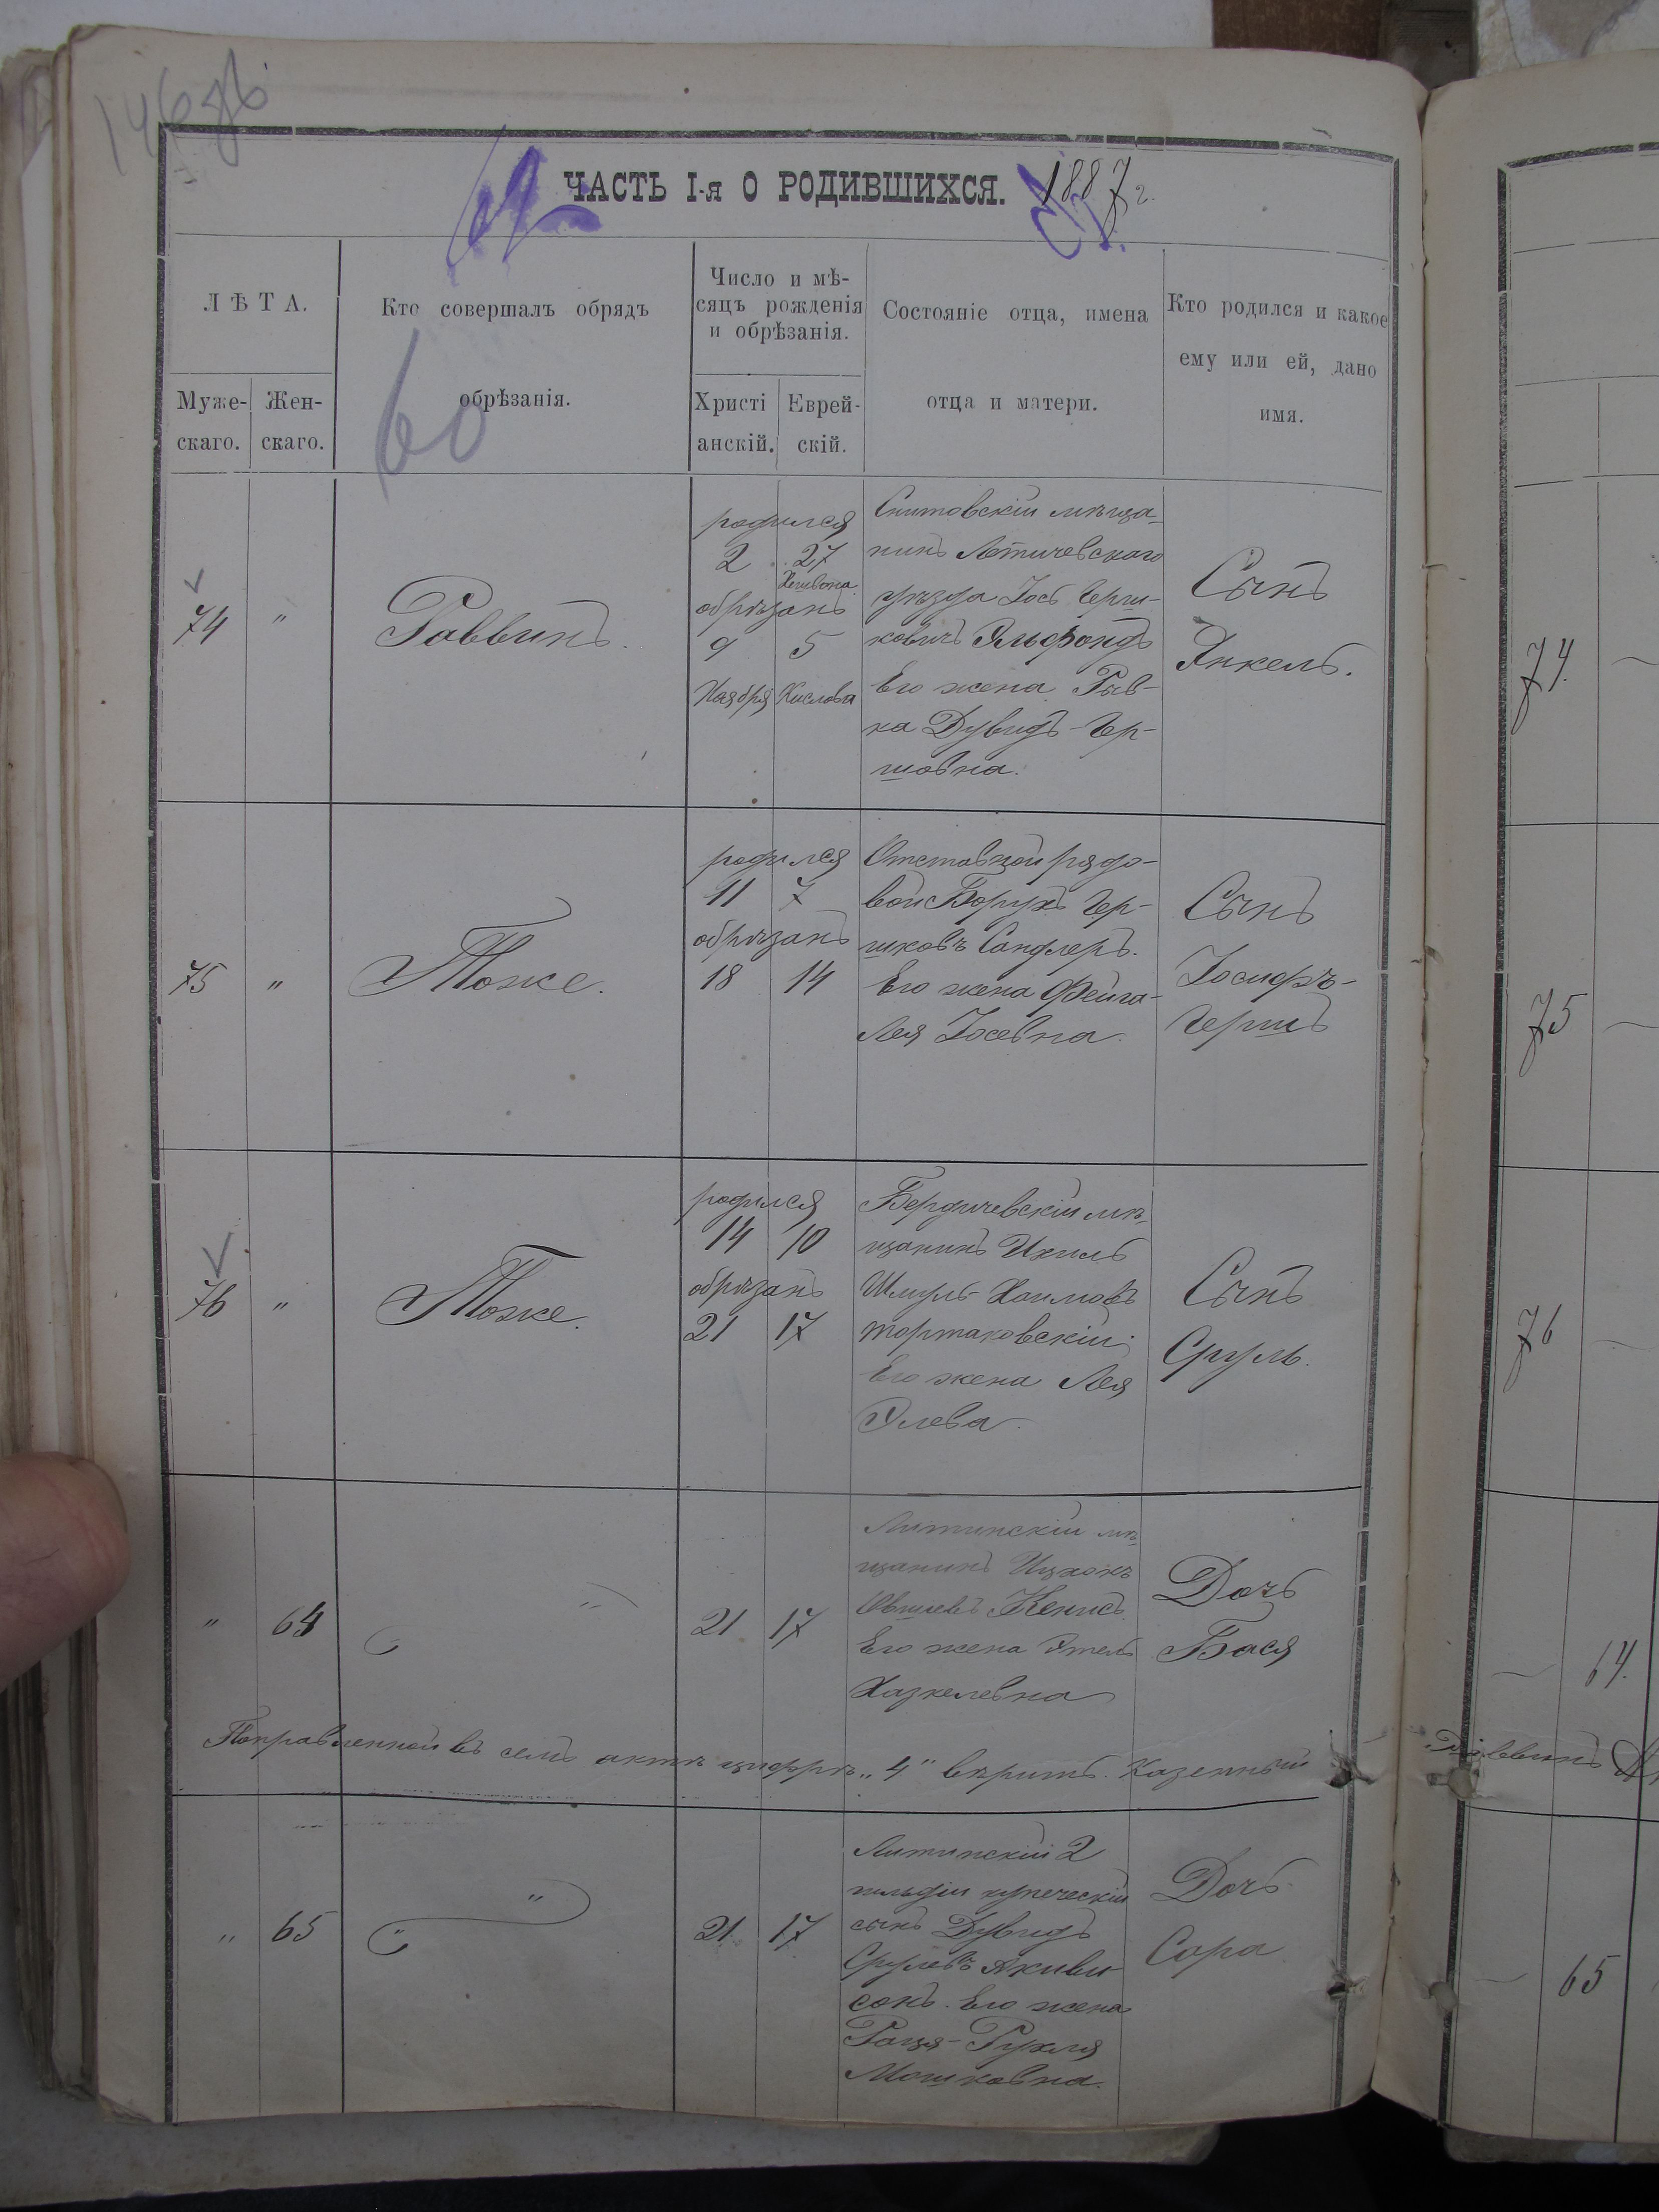 146 об
ЧАСТЬ I-я О РОДИВШИХСЯ. 1887 г.
ЛѢТА.
Муже-
скаго.
Жен-
скаго.
Кто совершалъ обрядъ
обрѣзанія.
60
Число и мѣ-
сяцъ рожденія
и обрѣзанія.
Христі
анскій.
Еврей-
скій.
Состояніе отца, имена
отца и матери.
Кто родился и какое
ему или ей, дано
имя.
74 "
Раввинъ.
родился
2 27
Хешвона
обрѣзанъ
9 5
Ноября Кислова
Снитовскій мѣща-
нинъ Летичевскаго
уѣзда Іось Герш-
ковичъ Эльфондъ
Его жена Рыв-
ка Дувидъ-Гер-
шовна.
Сынъ
Янкель.
74
75 "
Тоже.
родился
11 7
обрѣзанъ
18 14
Отставной рядо-
вой Борухъ Гер-
шковъ Сандлеръ.
Его жена Фейга-
Лея Іосевна.
Сынъ
Іосифъ-
Гершъ
75
76 "
Тоже.
родился
14 10
обрѣзанъ
21 17
Бердичевскій мѣ-
щанинъ Ихиль
Шмуль Хаимовъ
Тортаковскій
Его жена Лея
Элева.
Сынъ
Сруль.
76
" 64
"
21 17
Литинскій мѣ-
щанинъ Ицхокъ
Овшіевъ Кенисъ.
Его жена Этель
Хазкелевна
Дочь
Бася
64.
Поправленной въ семъ актѣ цифрѣ "4" вѣрить. Казенный
Раввинъ
" 65
"
21 17
Литинскій 2
гильдіи купеческій
сынъ Дувидъ
Срулевъ Акиви-
сонъ. Его жена
Раця-Рухля
Мошковна.
Дочь
Сора
65